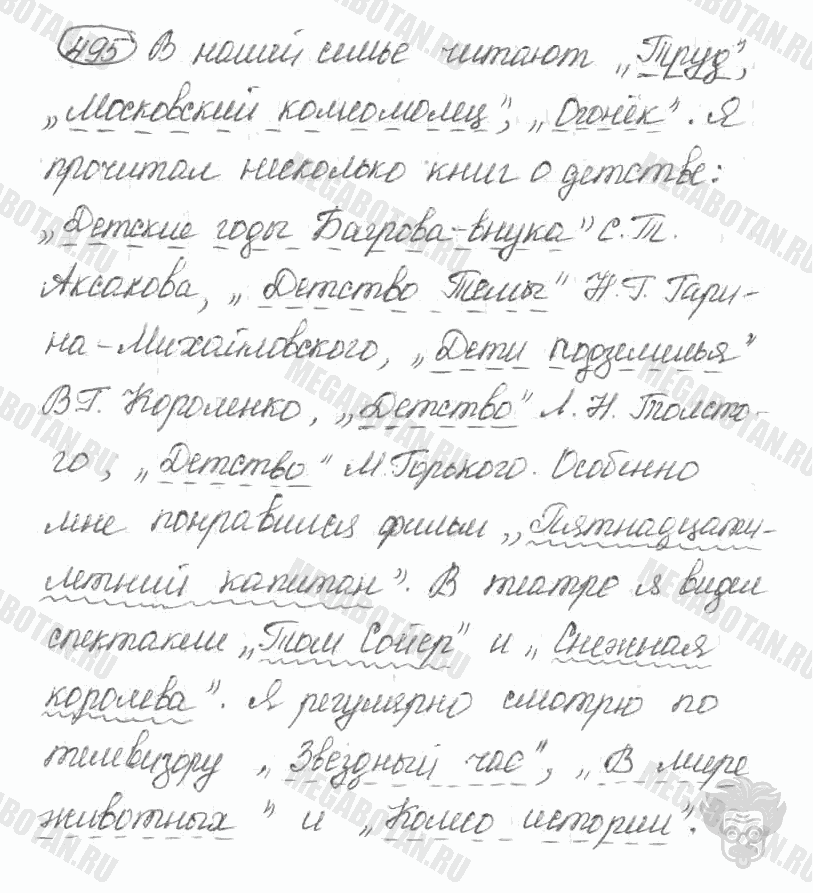 495 В нашей семье читают „Труд",
„Московский комсомолец", „Огонёк". Я
прочитал несколько книг о детстве:
„Детские годы Багрова-внука" С.Т.
Аксакова, „Детство Темы" Н.Г. Гари-
на-Михайловского, „Дети подземелья"
В.Г. Короленко, „Детство" Л.Н. Толсто-
го, „Детство" М.Горького. Особенно
мне понравился фильм „Пятнадцати-
летний капитан". В театре я видел
спектакли „Том Сойер" и „Снежная
королева". Я регулярно смотрю по
телевизору „Звездный час", „В мире
животных" и „Колесо истории".
MEGABOTAN.RU